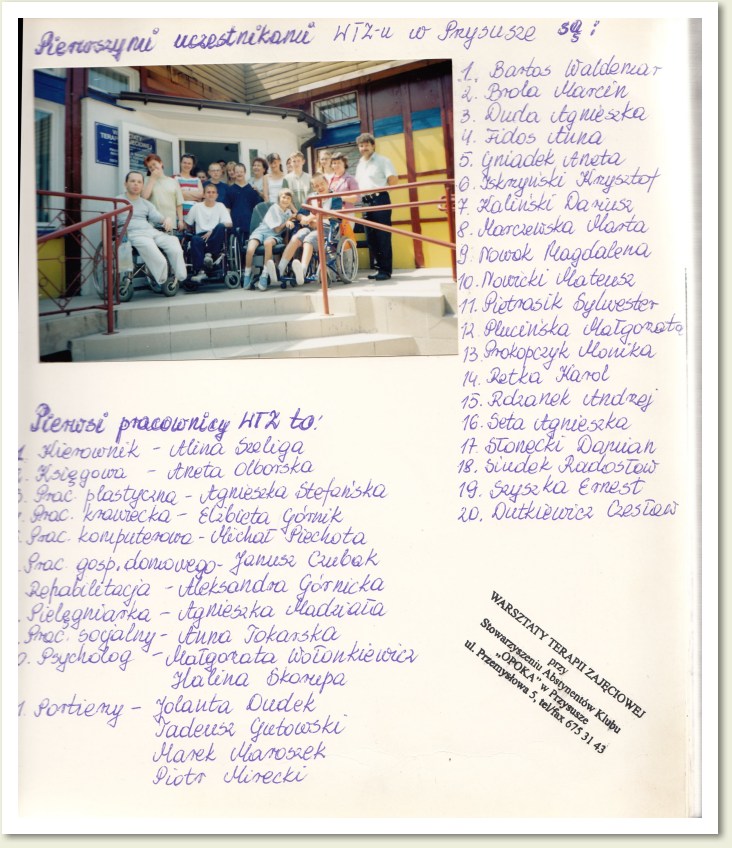 Pierwszymi uczestnikami WTZ-u w Przysusze są:
1. Bartos Waldemar
2. Brola Marcin
3. Duda Agnieszka
4. Fidos Anna
5. Gniadek Aneta
6. Iskrzyński Krzysztof
7. Kaliński Dariusz
8. Marczewska Marta
9. Nowak Magdalena
10. Nowicki Mateusz
11. Pietrasik Sylwester
12. Plucińska Małgorzata
13. Prokopczyk Monika
14. Retka Karol
15. Rdzanek Andrzej
16. Seta Agnieszka
17. Słonecki Damian
18. Siudek Radosław
19. Szyszka Ernest
20. Dutkiewicz Czesław
TERAPII ZAJĘCIOWEJ
Pierwsi pracownicy WTZ to:
1. Kierownik - Alina Szeliga
Księgowa - Aneta Olborska
Prac. plastyczna - Agnieszka Stefańska
Prac. krawiecka - Elżbieta Górnik
Prac. komputerowa - Michał Piechota
Prac. gosp. domowego - Janusz Czubak
Rehabilitacja - Aleksandra Górnicka
Pielęgniarka - Agnieszka Madziała
Prac. socjalny - Anna Tokarska
Psycholog - Małgorzata Wołonkiewicz
Halina Skorupa
Portierzy - Jolanta Dudek
Tadeusz Gutowski
Marek Maroszek
Piotr Mirecki
WARSZTATY TERAPII ZAJĘCIOWEJ
przy
Stowarzyszeniu Abstynentów Klubu
"OPOKA" w Przysusze
ul. Przemysłowa 5, tel/fax 675 31 43